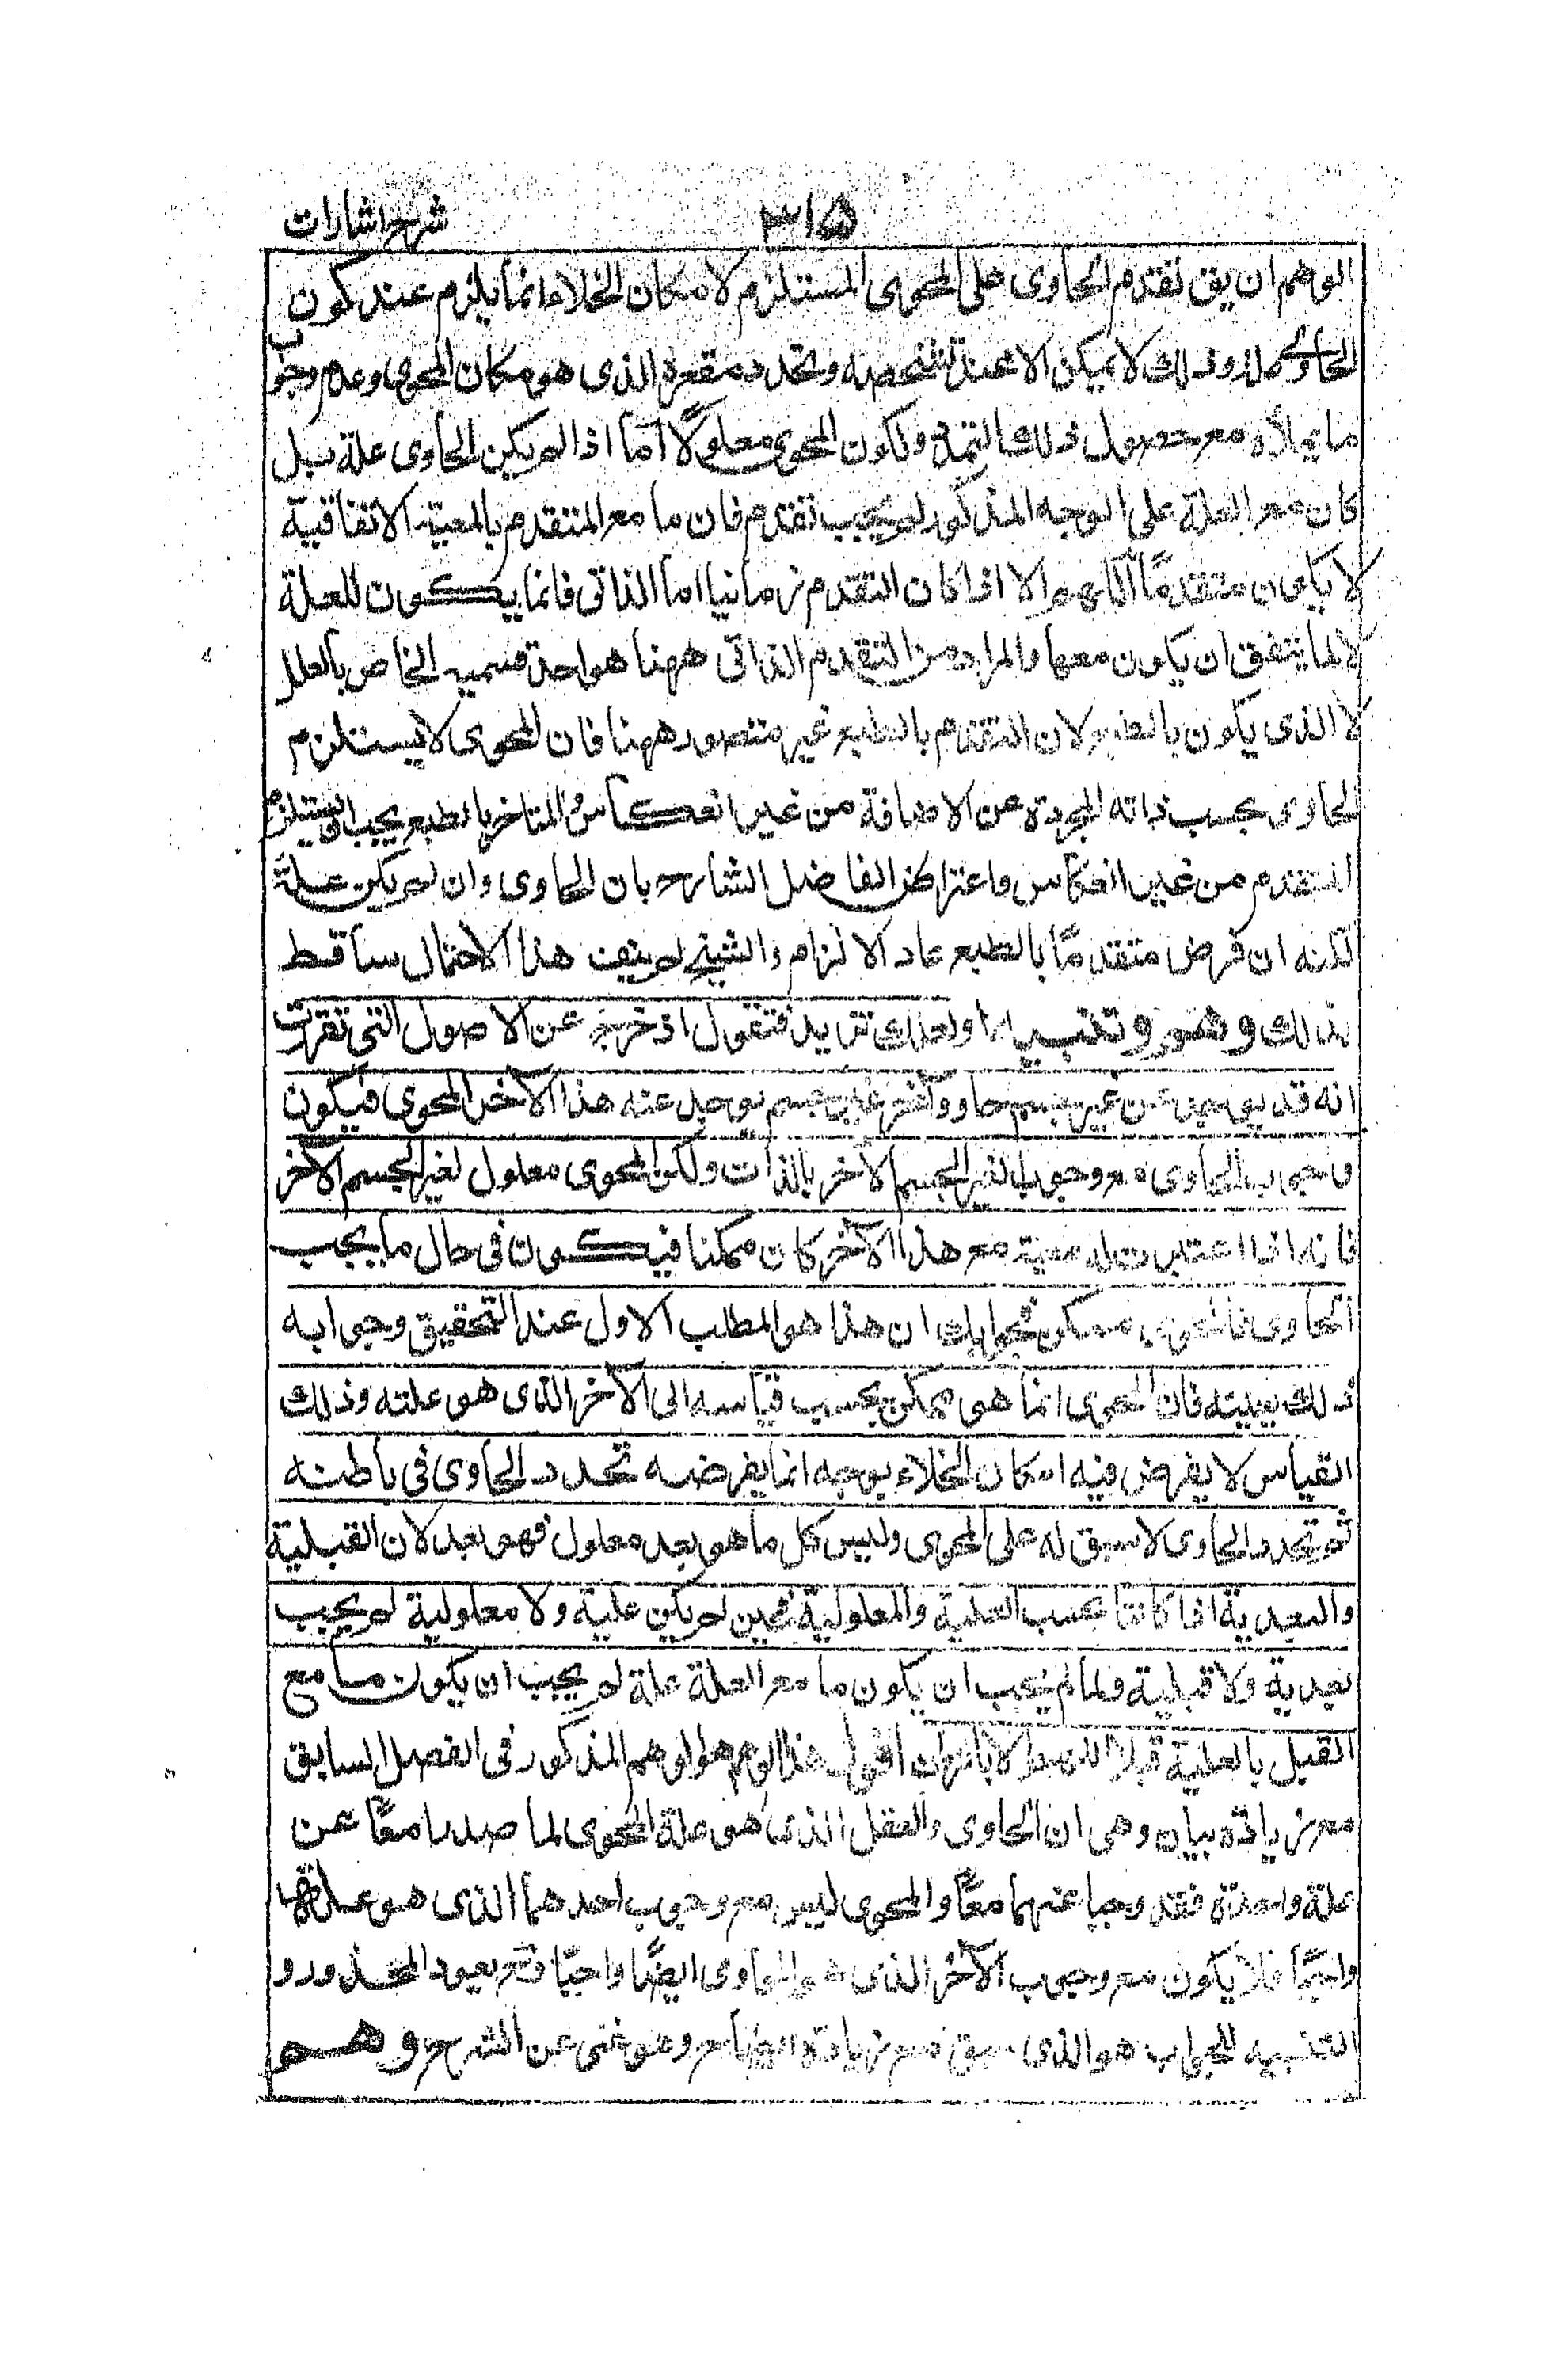 شرح اشارات ۳۱۵
الوهم ان يق تقدم الحاوى على المحوى المستلزم لامكان الخلاء انما يلزم عند كون
الحاوى علة وذلك لا يمكن الا عند تشخصه وتحدد مقعره الذى هو مكان المحوى وعدم وجوب
ما يملأه مع حصول ذلك التحدد ولكون المحوى معلولًا اما اذا لم يكن الحاوى علة بل
كان مع العلة على الوجه المذكور لم يجب تقدم فان ما مع المتقدم بالمعية الاتفاقية
لا يكون متقدمًا اللهم الا اذا كان التقدم زمانيا اما الذاتى فانما يكون للعلة
لا لما يتفق ان يكون معها والمراد من التقدم الذاتى ههنا هو احد قسميه الخاص بالعلل
لا الذى يكون بالطبع لان التقدم بالطبع غير متصور ههنا فان المحوى لا يستلزم
الحاوى بحسب ذاته المجردة عن الاضافة من غير انعكاس والمتاخر بالطبع يجب ان يستلزم
المتقدم من غير انعكاس واعتراض الفاضل الشارح بان الحاوى وان لم يكن علة
لكنه ان فرض متقدمًا بالطبع عاد الالزام والشيخ لم ينف هذا الاحتمال ساقط
بذلك وهم وتنبيه او لعلك تزيد فتقول اذ خرج عن الاصول التى تقررت
انه قد يوجد عن غير جسم حاو وآخر غير جسم يوجد عنه هذا الآخر المحوى فيكون
وجوب الحاوى مع وجوب الغير الجسم الآخر بالذات ولكن المحوى معلول لغير الجسم الآخر
فانه اذا اعتبرت له معية مع هذا الآخر كان ممكنا فيكون فى حال ما يجب
الحاوى فالمحوى ممكن فجوابك ان هذا هو المطلب الاول عند التحقيق وجوابه
ذلك بعينه فان المحوى انما هو ممكن بحسب قياسه الى الآخر الذى هو علته وذلك
القياس لا يفرض فيه امكان الخلاء بوجه انما يفرضه تحدد الحاوى فى باطنه
ثم تحدد الحاوى لا سبق له على المحوى وليس كل ما هو بعد معلول فهو بعد لان القبلية
والبعدية اذا كانتا بحسب العلية والمعلولية فحين لم يكن علية ولا معلولية لم يجب
بعدية ولا قبلية ولما لم يجب ان يكون ما مع العلة علة لم يجب ان يكون ما مع
القبل بالعلية قبلا اللهم الا بالزمان اقول هذا الوهم هو الوهم المذكور فى الفصل السابق
مع زيادة بيان وهى ان الحاوى والعقل الذى هو علة المحوى لما صدرا معًا عن
علة واحدة فقد وجبا عنهما معًا والمحوى ليس مع وجوب احدهما الذى هو علته
واجبًا فلا يكون مع وجوب الآخر الذى هو الحاوى ايضًا واجبًا فثم يعود المحذور و
التنبيه للجواب هو الذى سبق مع زيادة ايضاح وهو غنى عن الشرح وهم